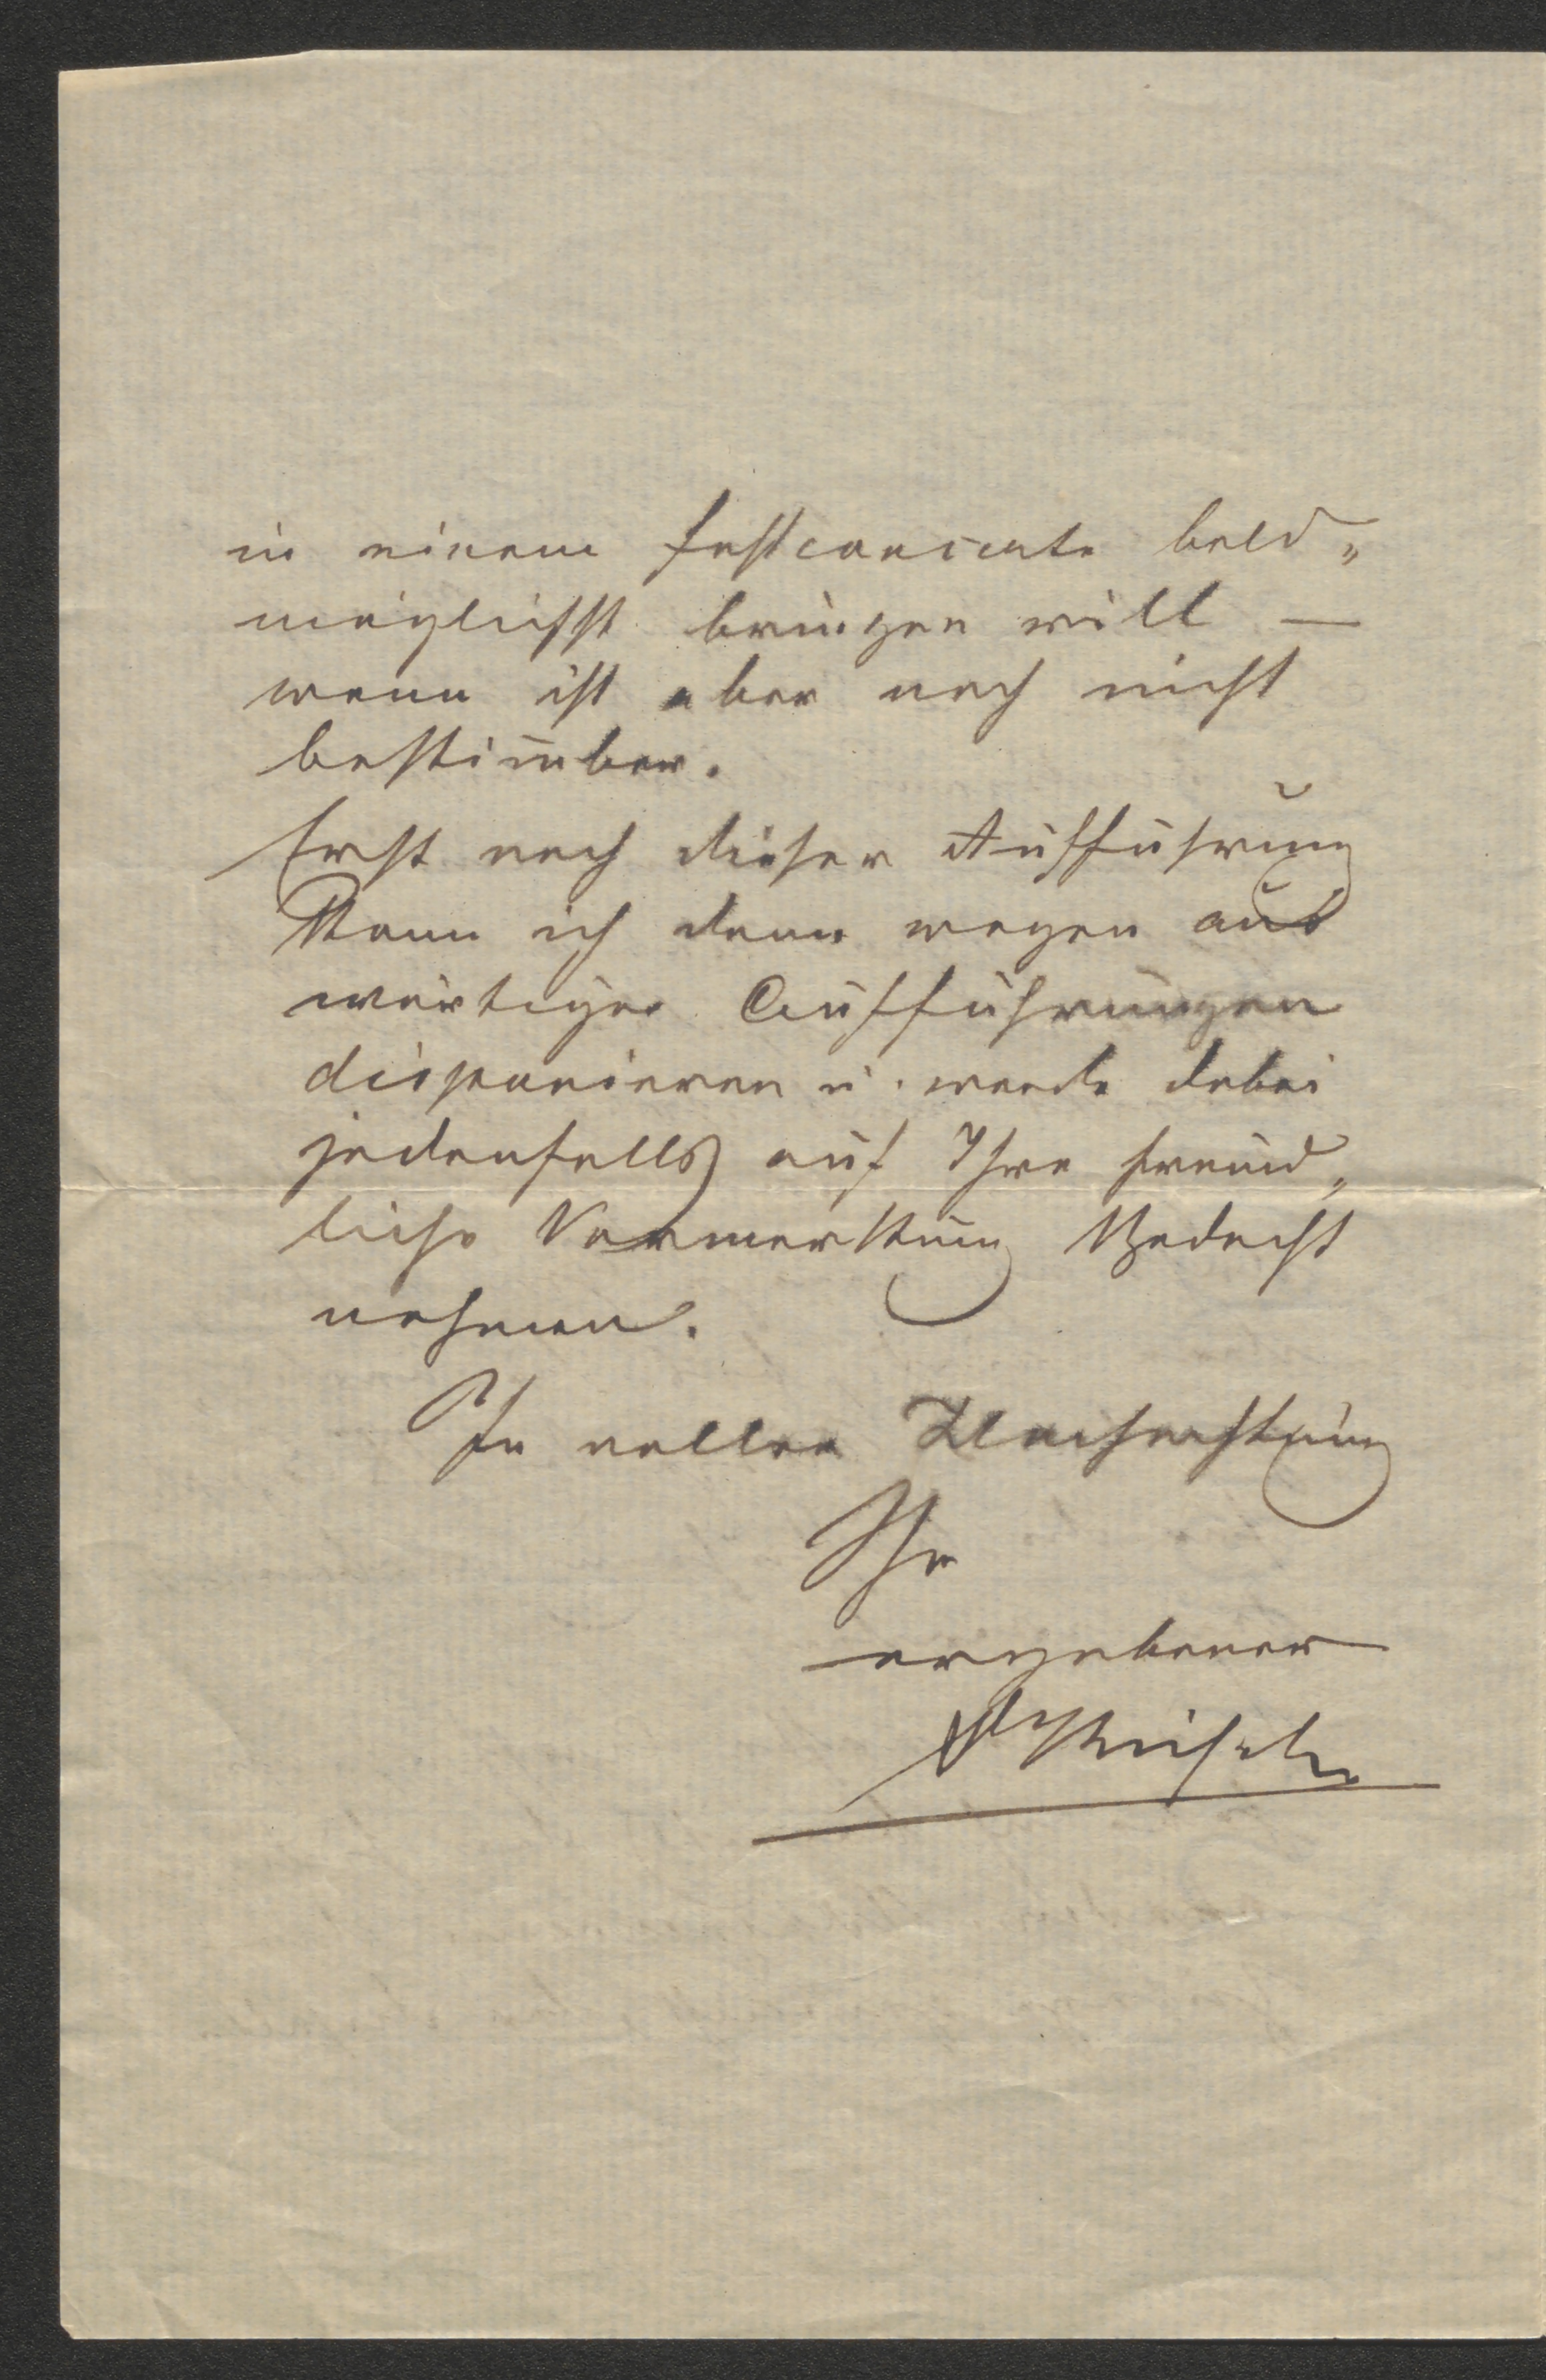 in einem Festconcerte bald„
möglichst bringen will —
wann ist aber noch nicht
bestimbar.
Erst nach dieser Aufführung
kann ich dann wegen aus
wärtiger Aufführungen
disponieren u. werde dabei
jedenfalls auf Ihre freund„
liche Vormerkung Bedacht
nehmen.
In voller Hochachtung
Ihr
ergebener